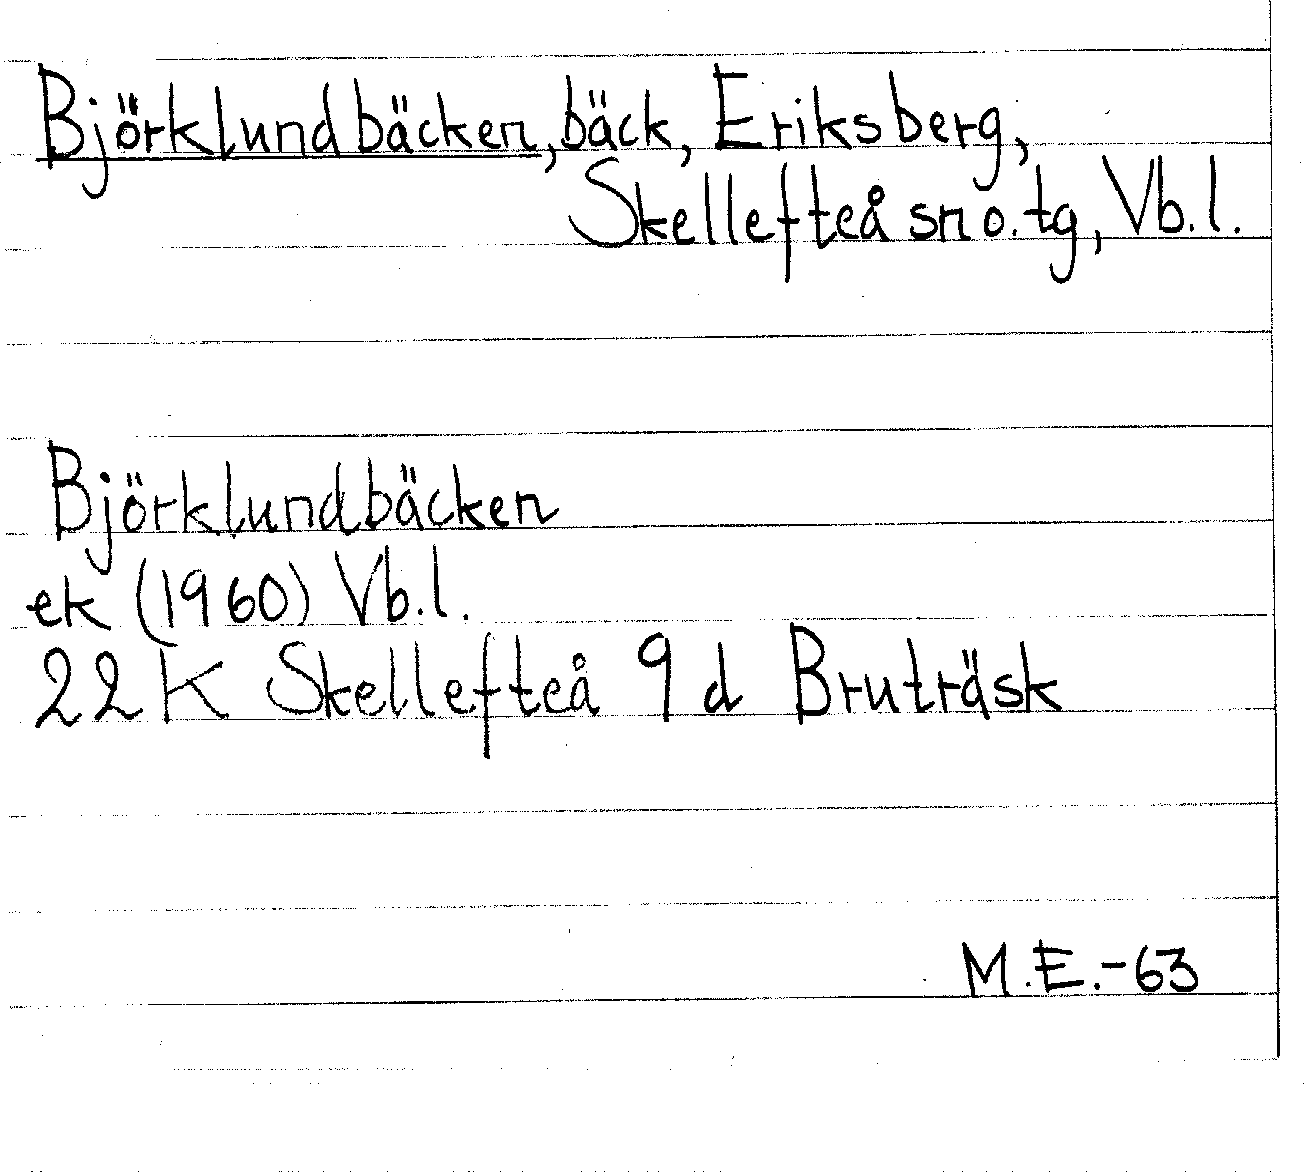 Björklundbäcken, bäck, Eriksberg,
Skellefteå sn o. tg, Vb. l.
Björklundbäcken
ek (1960) Vb. l.
22 K Skellefteå 9 d Bruträsk
M.E.-63